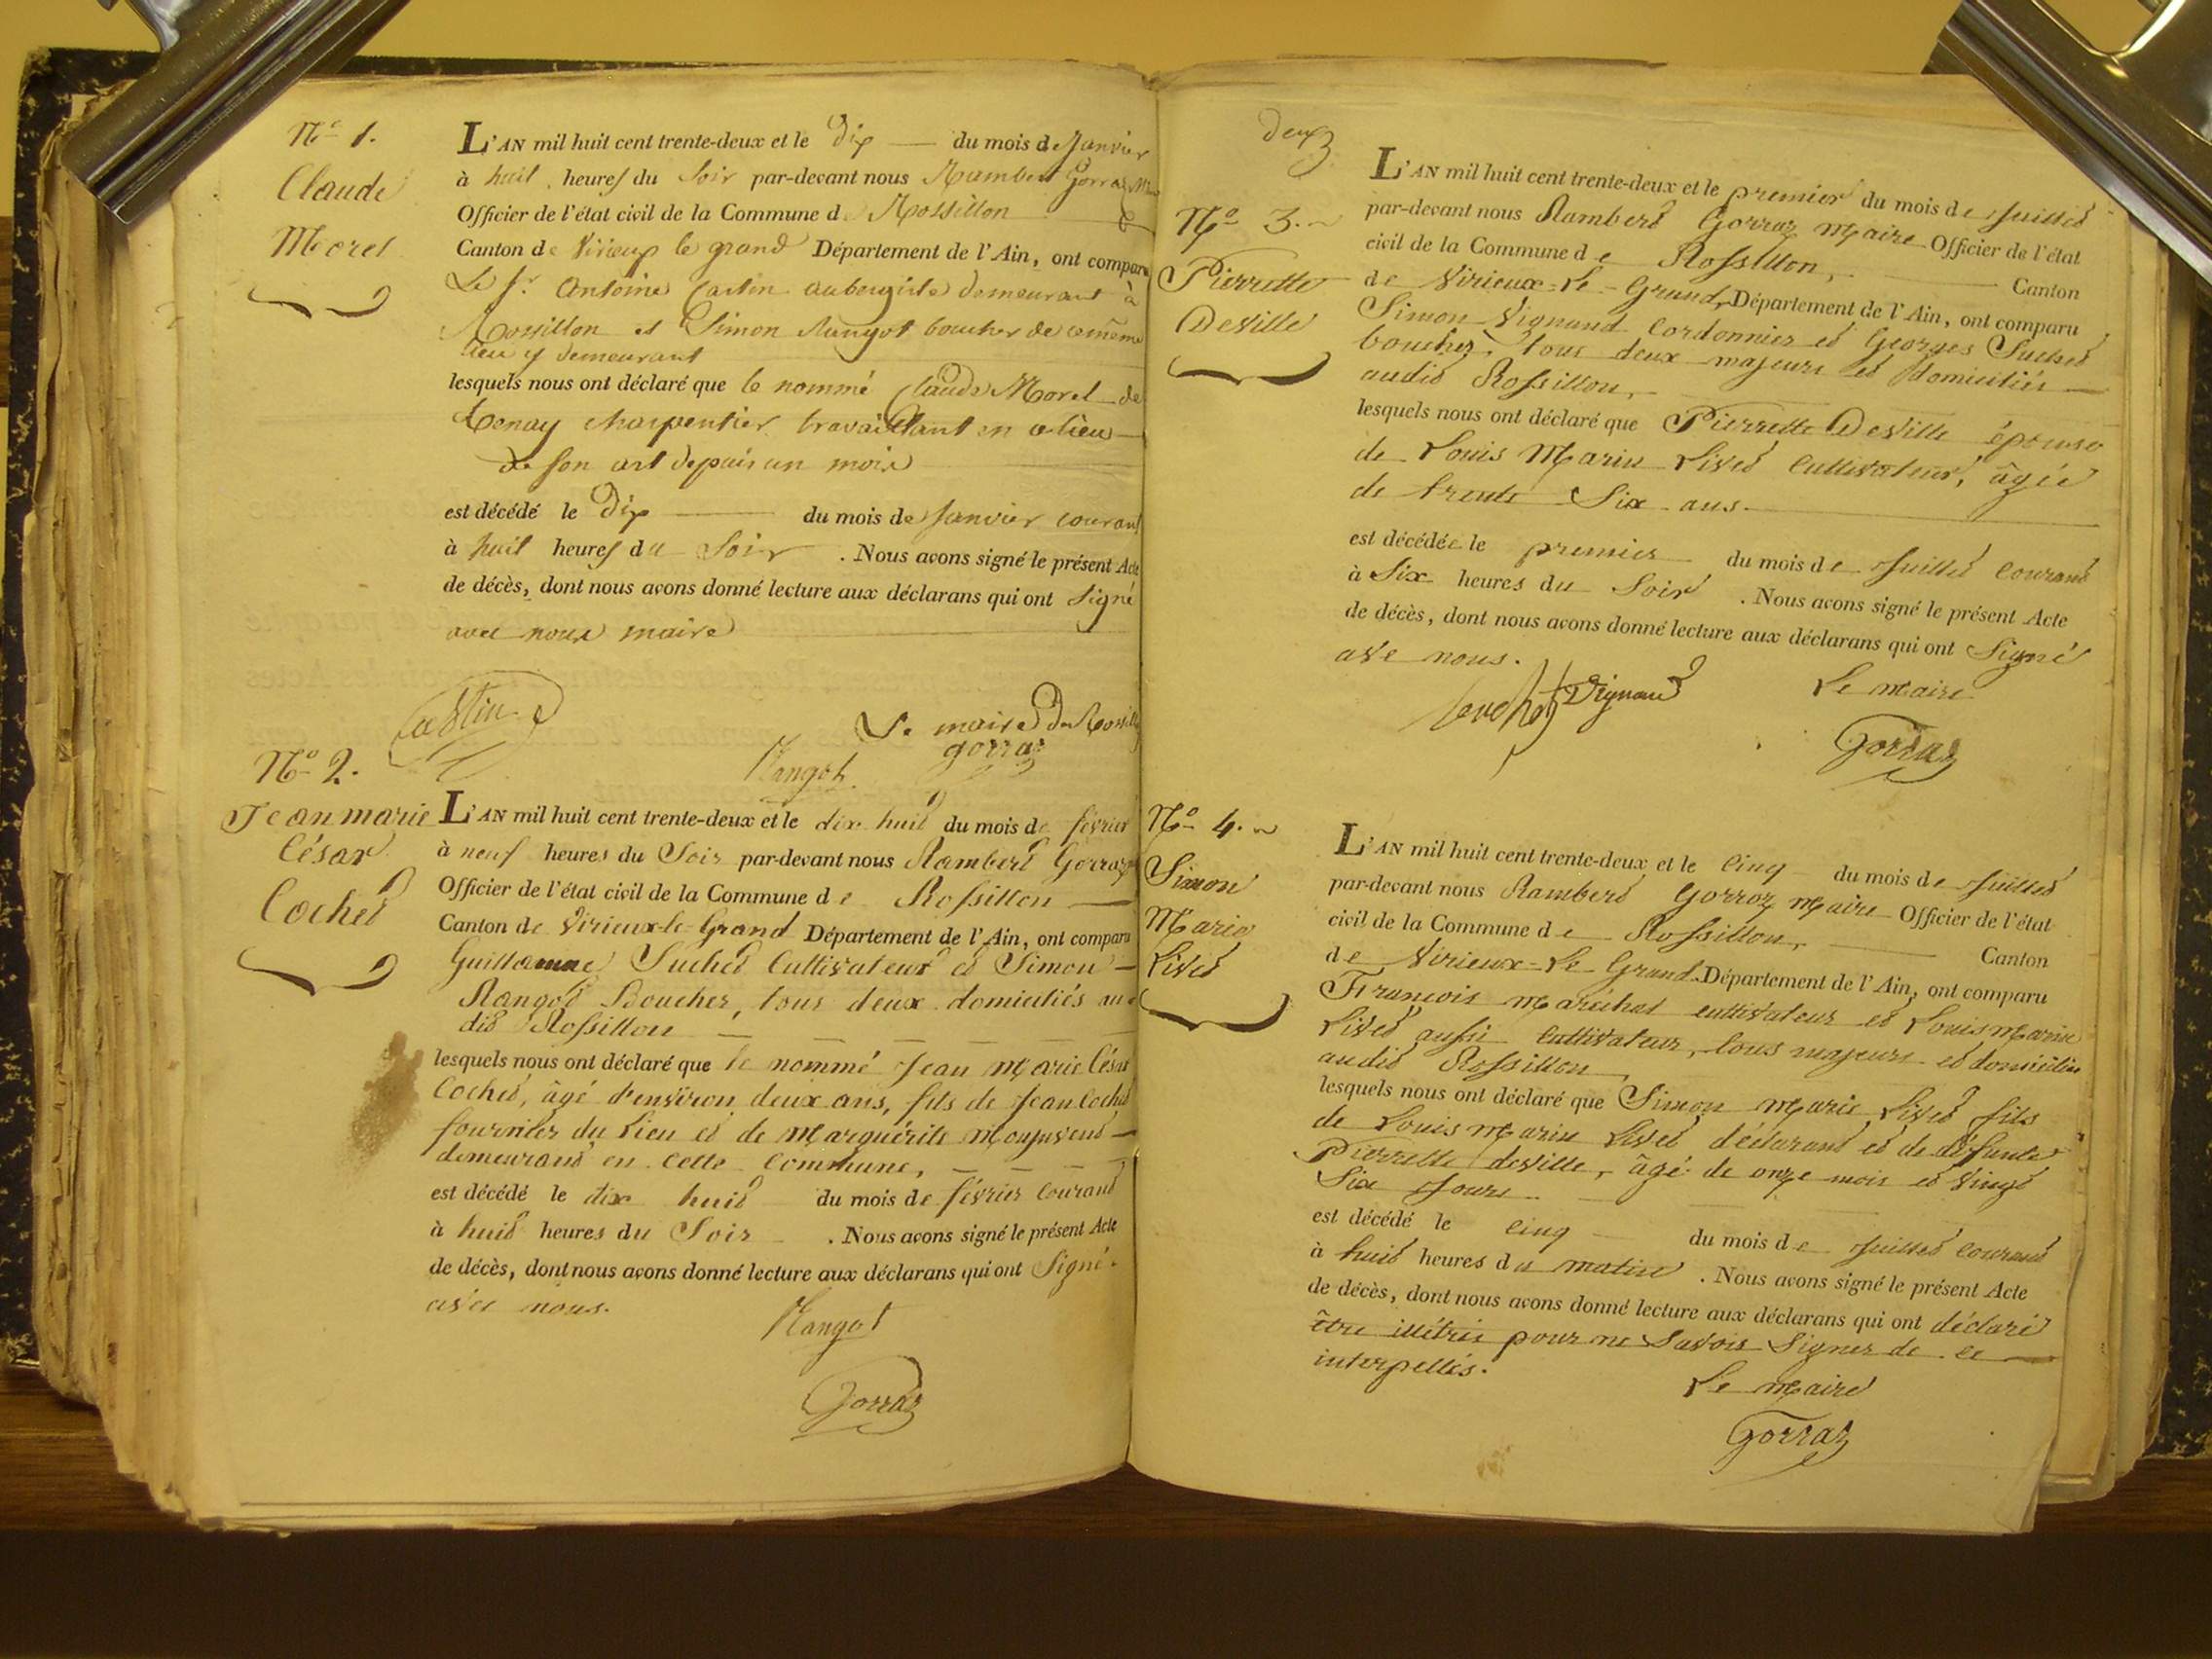 Nº 1.
Claude
Morel
L'AN mil huit cent trente-deux et le Dix du mois de Janvier
à huit heures du Soir par-devant nous Rambert Gorraz
Officier de l'état civil de la Commune de Rossillon
Canton de Virieux le grand Département de l'Ain, ont comparu
Le Sr. Antoine Castin aubergiste demeurant à
Rossillon et Simon Rangot boucher de ce même
lieu y demeurant
lesquels nous ont déclaré que le nommé Claude Morel de
Tenay charpentier travaillant en ce lieu
de son art depuis un mois
est décédé le Dix du mois de Janvier courant
à huit heures du Soir . Nous avons signé le présent Acte
de décès, dont nous avons donné lecture aux déclarans qui ont Signé
avec nous maire
Castin
Le maire de Rossillon
gorraz
Rangot
Nº 2.
Jean marie
César
Cochet
L'AN mil huit cent trente-deux et le dix huit du mois de février
à neuf heures du Soir par-devant nous Rambert Gorraz
Officier de l'état civil de la Commune de Rossillon
Canton de Virieux-le-Grand Département de l'Ain, ont comparu
Guillaume Suchet Cultivateur et Simon
Rangot Boucher, tous deux domiciliés au
dit Rossillon
lesquels nous ont déclaré que le nommé Jean Marie César
Cochet, âgé d'environ deux ans, fils de Jean Cochet
fournier du Lieu et de Marguérite Monjuvent
demeurant en cette Commune,
est décédé le dix huit du mois de février courant
à huit heures du Soir . Nous avons signé le présent Acte
de décès, dont nous avons donné lecture aux déclarans qui ont Signé
avec nous.
Rangot
Gorraz
deux
Nº 3.
Pierrette
Deville
L'AN mil huit cent trente-deux et le premier du mois de Juillet
par-devant nous Rambert Gorraz Maire Officier de l'état
civil de la Commune de Rossillon, Canton
de Virieux-Le-Grand, Département de l'Ain, ont comparu
Simon Vignand Cordonnier et Georges Suchet
boucher, tous deux majeurs et domiciliés
audit Rossillon,
lesquels nous ont déclaré que Pierrette Deville épouse
de Louis Marin Livet Cultivateur, âgée
de trente Six ans.
est décédée le premier du mois de Juillet courant
à Six heures du Soir . Nous avons signé le présent Acte
de décès, dont nous avons donné lecture aux déclarans qui ont Signé
ave nous.
Vignand
Le maire
Gorraz
Nº 4.
Simon
Marie
Livet
L'AN mil huit cent trente-deux et le Cinq du mois de Juillet
par-devant nous Rambert Gorraz Maire Officier de l'état
civil de la Commune de Rossillon, Canton
de Virieux-Le-Grand Département de l'Ain, ont comparu
François Maréchal cultivateur et Louis Marin
Livet aussi Cultivateur, tous majeurs et domiciliés
audit Rossillon
lesquels nous ont déclaré que Simon Marie Livet fils
de Louis Marin Livet déclarant et de défunte
Pierrette deville, âgé de onze mois et Vingt
Six Jours
est décédé le Cinq du mois de Juillet courant
à huit heures du matin . Nous avons signé le présent Acte
de décès, dont nous avons donné lecture aux déclarans qui ont déclaré
être illétrés pour ne Savoir Signer de ce
interpellés.
Le Maire
Gorraz